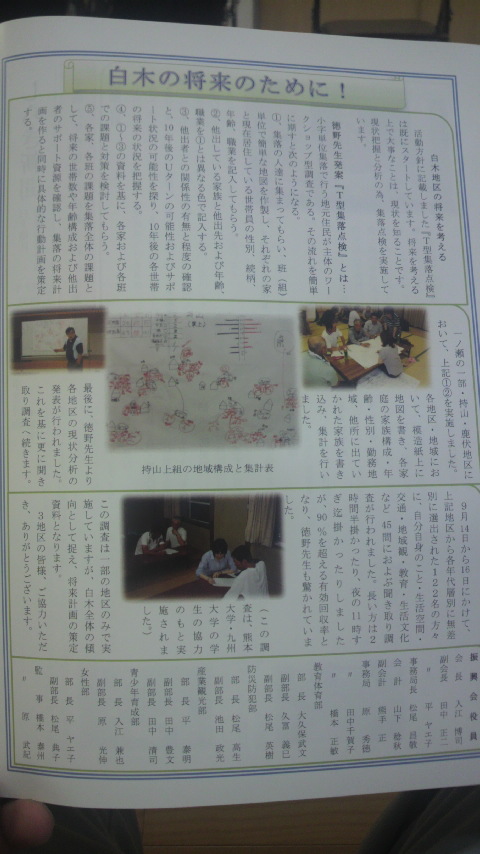 白木の将来のために！
白木地区の将来を考える
活動方針に記載しました『T型集落点検』
は既にスタートしています。将来を考える
上で大事なことは、現状を知ることです。
現状把握と分析の為、集落点検を実施して
います。
徳野先生考案『T型集落点検』とは…
小字単位集落で行う地元住民が主体のワー
クショップ型調査である。その流れを簡単
に期すと次のようになる。
①、集落の人達に集まってもらい、班（組）
単位で簡単な地図を作製し、それぞれの家
と現在居住している世帯員の性別、続柄、
年齢、職業を記入してもらう。
②、他出している家族と他出先および年齢、
職業を①とは異なる色で記入する。
③、他出者との関係性の有無と程度の確認
と、10年後のUターンの可能性およびサポ
ート状況の可能性を探り、10年後の各世帯
の将来の状況を把握する。
④、①～③の資料を基に、各家および各班
での課題と対策を検討してもらう。
⑤、各家、各班の課題を集落全体の課題と
して、将来の世帯数や年齢構成および他出
者のサポート資源を確認し、集落の将来計
画を作ると同時に具体的な行動計画を策定
する。
一ノ瀬の一部・持山・慶伏地区に
おいて、上記①②を実施しました。
各地区・地域にお
いて、模造紙上に
地図を書き、各家
庭の家族構成・年
齢・性別・勤務地
域・他所に出てい
かれた家族を書き
込み、集計を行い
ました。
持山上組の地域構成と集計表
最後に、徳野先生より
各地区の現状分析の
発表が行われました。
これを基に更に聞き
取り調査へ続きます。
9月14日から16日にかけて、
上記地区から各年代層別に無差
別に選出された122名の方々
に、自分自身のこと・生活空間・
交通・地域観・教育・生活文化
など45問におよぶ聞き取り調
査が行われました。長い方は2
時間半掛かったり、夜の11時す
ぎ迄掛かったりしました
が、90%を超える有効回収率と
なり、徳野先生も驚かれていま
した。
（この調
査は、熊本
大学・九州
大学の学
生の協力
のもと実
施されま
した。）
この調査は一部の地区のみで実
施していますが、白木全体の傾
向として捉え、将来計画の策定
資料となります。
3地区の皆様、ご協力いただ
き、ありがとうございます。
振興会役員
会長 入江 博司
副会長 田中 正二
〃 平 ヤエ子
事務局長 松尾 昌敏
会計 山下 稔秋
副会計 張手 正
事務局 原 秀徳
〃 田中千賀子
〃 橋本 正敏
教育体育部
部長 大久保武文
副部長 久冨 義巳
副部長 松尾 英樹
防災防犯部
部長 松尾 高生
副部長 池田 政光
産業観光部
部長 平 泰明
副部長 田中 豊文
副部長 田中 清司
青少年育成部
部長 入江 兼也
副部長 原 光伸
女性部
部長 平 ヤエ子
副部長 松尾 典子
監事 橋本 泰州
〃 原 武紀